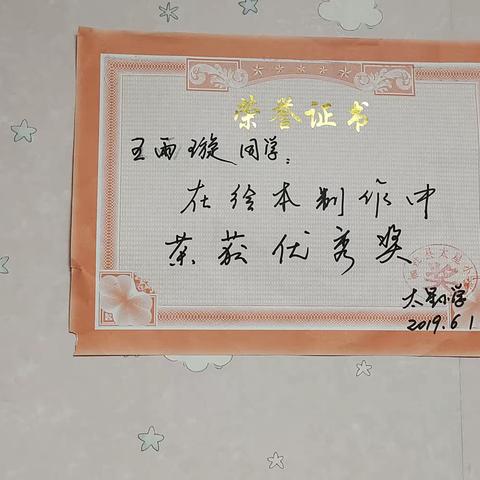 荣誉证书
王雨璇同学：
在绘本制作中
荣获优秀奖
太星小学
2019.6.1